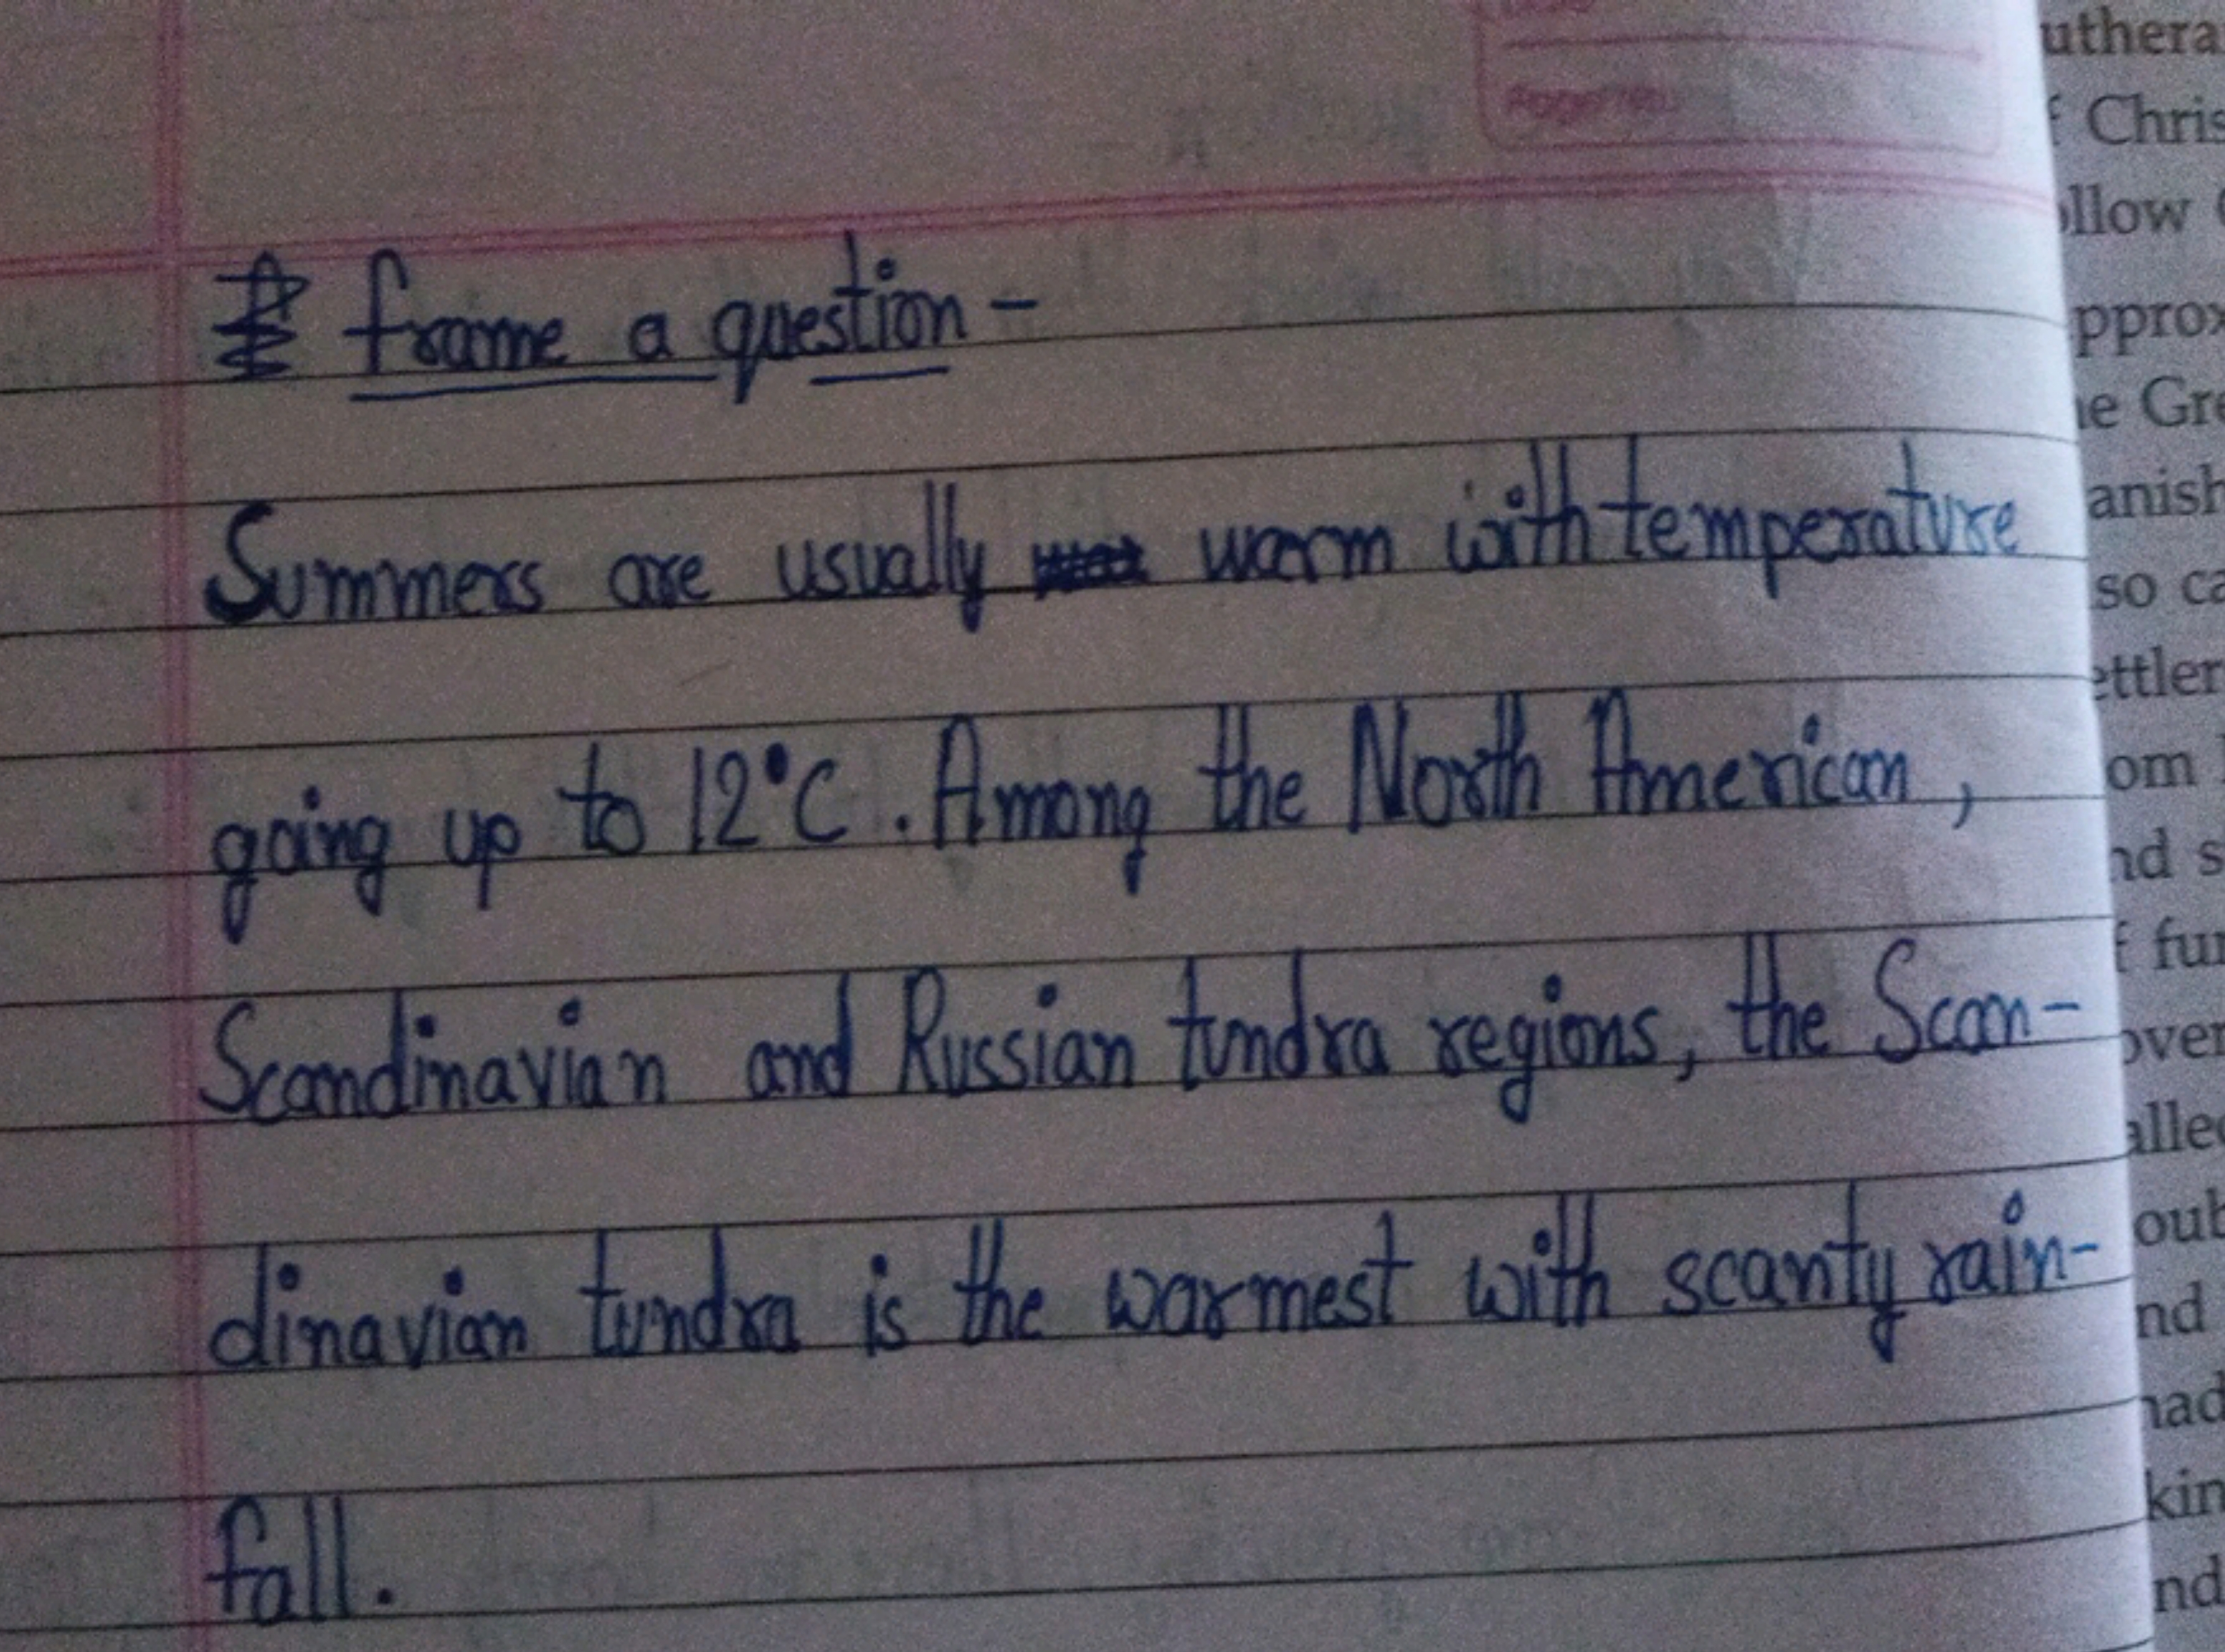 Page No.
frame a question -
Summers are usually warm with temperature
going up to 12°C. Among the North American,
Scandinavian and Russian tundra regions, the Scan-
dinavian tundra is the warmest with scanty rain-
fall.
uthera
Chris
ollow
pprox
e Gre
anish
so ca
ettler
om
nd s
f fur
over
alled
oub
nd
had
kin
nd